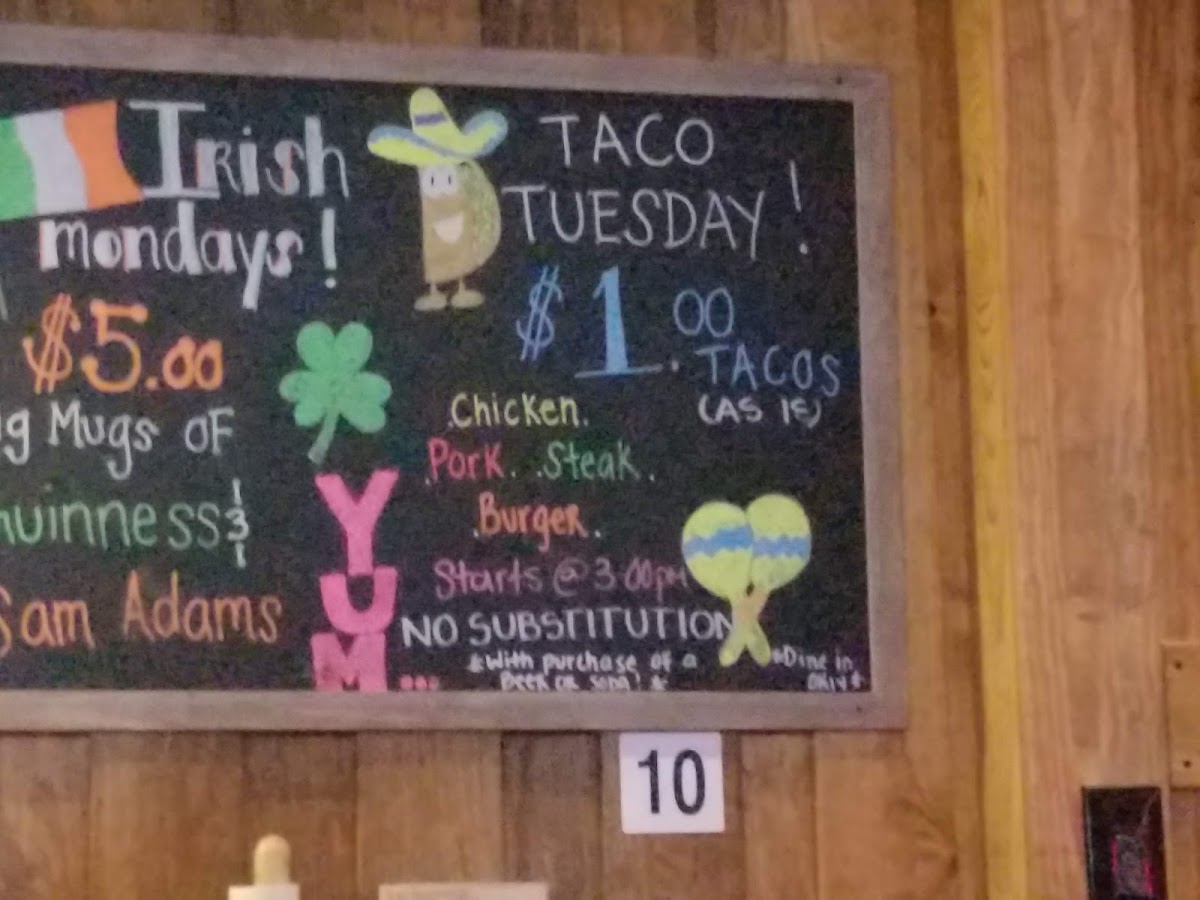 Irish
mondays!
$5.00
g Mugs OF
uinness &
Sam Adams
YUM...
TACO
TUESDAY!
$1.00
TACOS
(AS IS)
.Chicken.
.Pork. .Steak.
.Burger.
Starts @ 3:00pm
NO SUBSTITUTION
*With purchase of a
Beer or soda! *
*Dine in
Only*
10